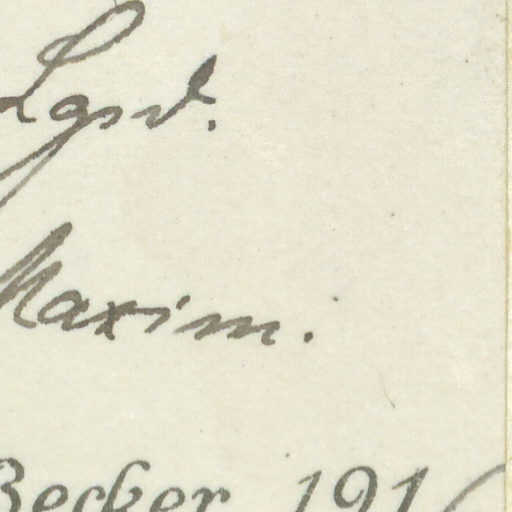 Lgrd.
Maxim.
Becker 191